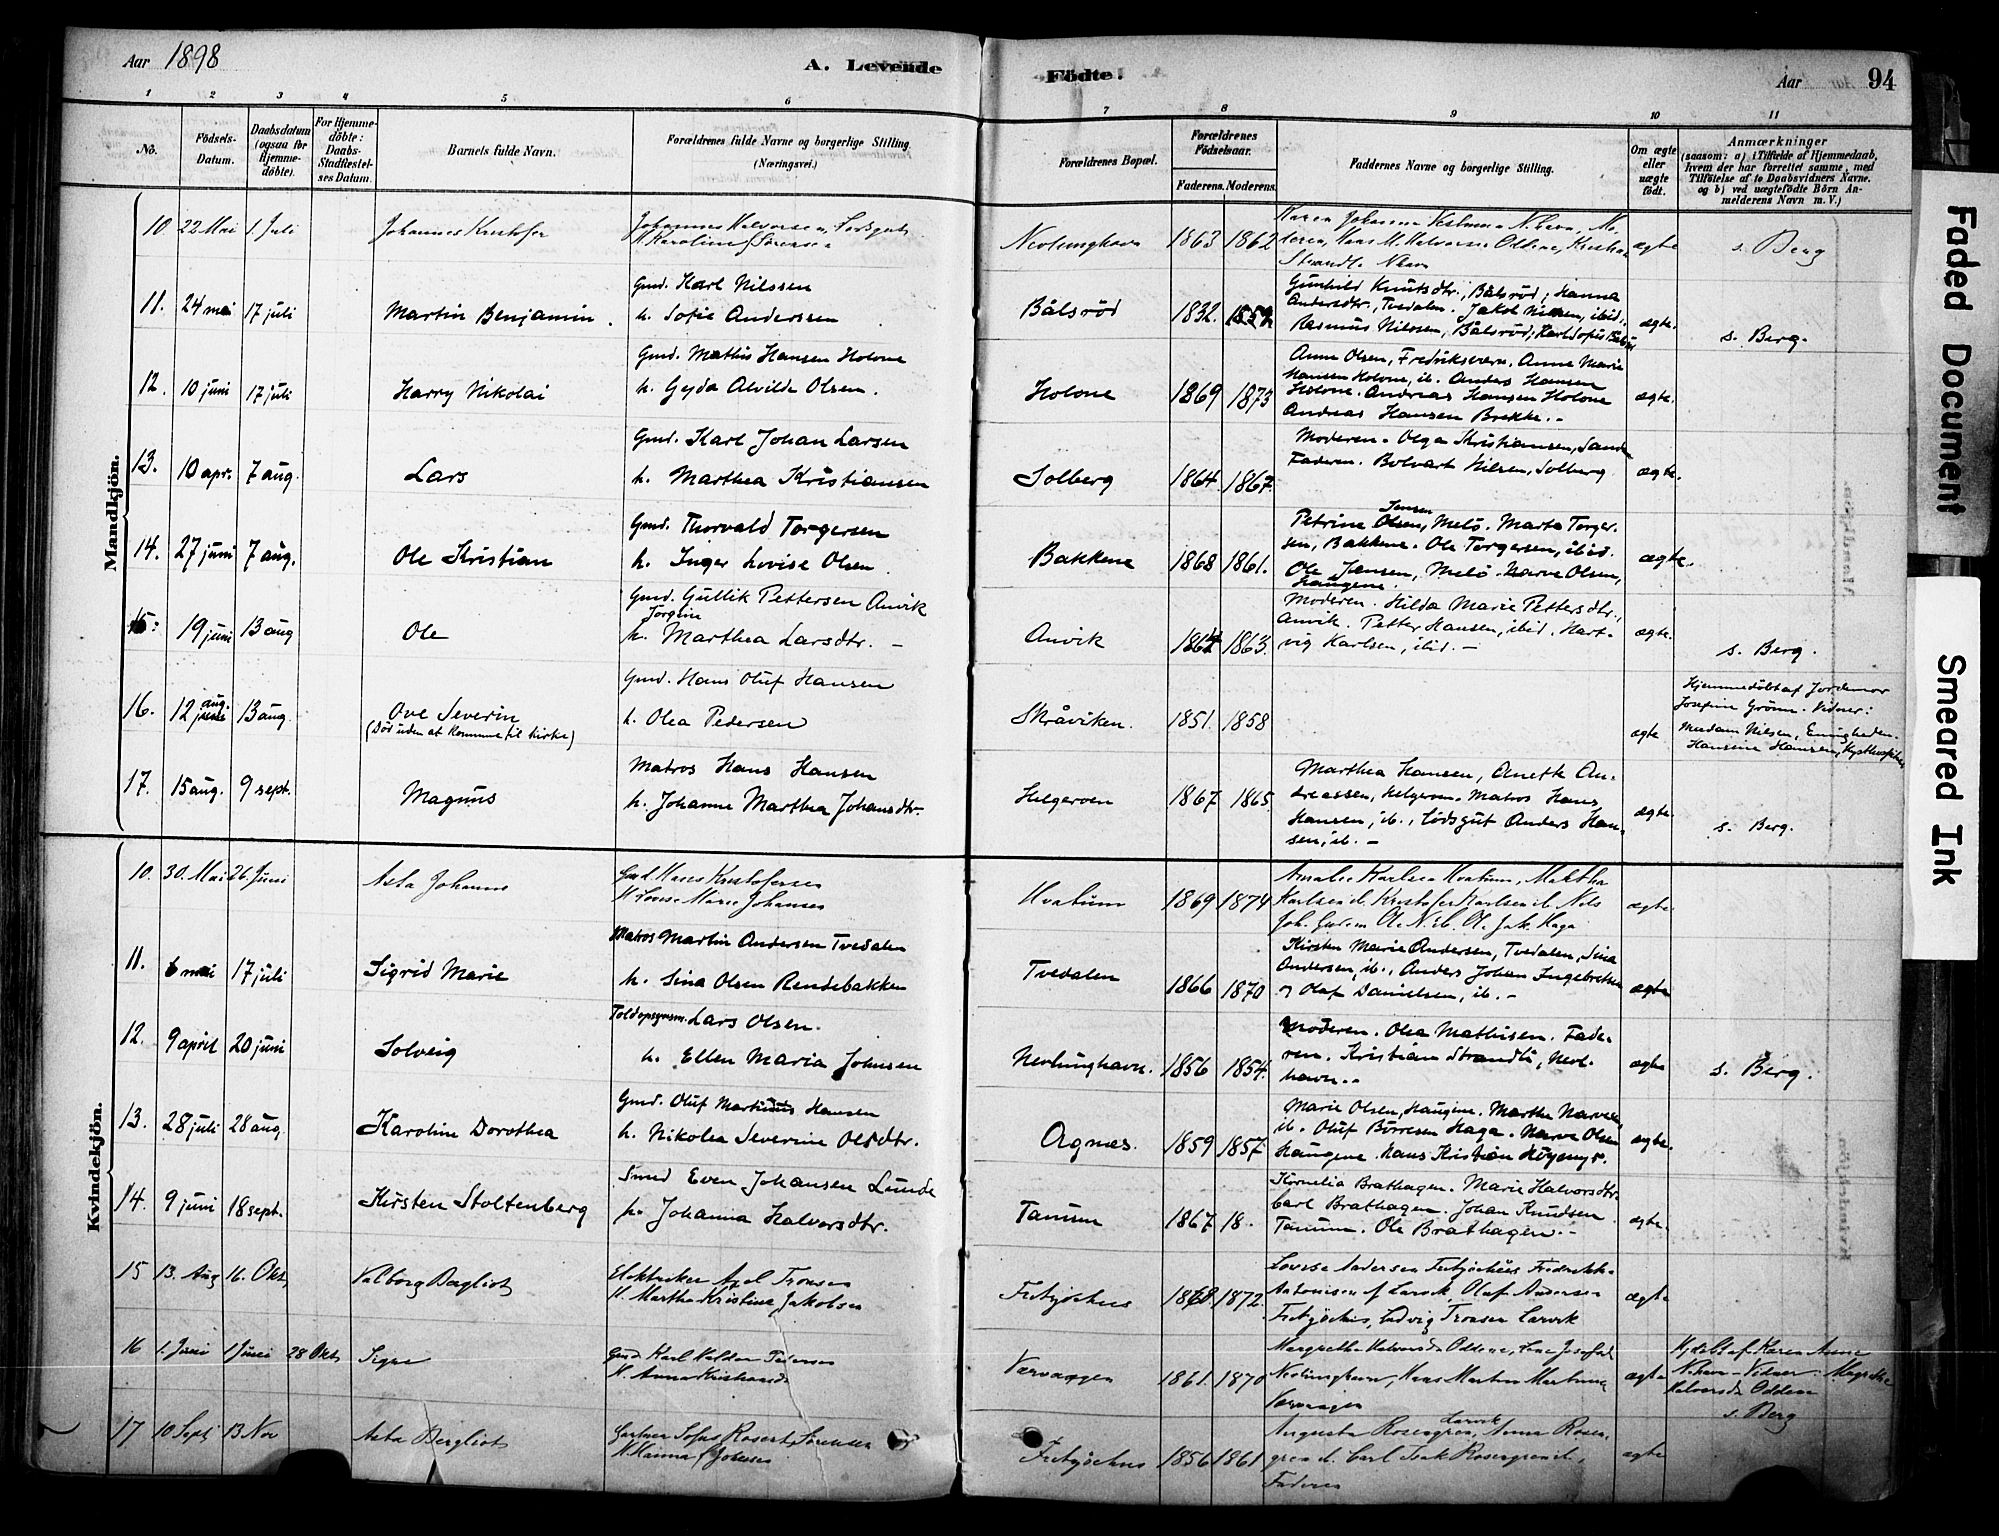 Aar 1898
A. Levende
Födte.
Aar
94
1 2 3 4 5 6 7 8 9 10 11
No.
Födsels-
Datum.
Daabsdatum
(ogsaa for
Hjemme-
döbte).
For Hjemme-
döbte:
Daabs-
Stadfæstel-
ses Datum.
Barnets fulde Navn.
Forældrenes fulde Navne og borgerlige Stilling.
(Næringsvei.)
Forældrenes Bopæl.
Forældrenes
Födselsaar.
Faderens. Moderens.
Faddernes Navne og borgerlige Stilling.
Om ægte
eller
uægte
födt.
Anmærkninger
(saasom: a) i Tilfælde af Hjemmedaab,
hvem der har forrettet samme, med
Tilföielse af to Daabsvidners Navne.
og b) ved uægtefödte Börn An-
melderens Navn m. V.)
Mandkjön.
10. 22 Mai 1. Juli
Johannes Kristofer
Johannes Halvorsen, Lodsgut
Nevlunghavn
1863 1862
ægte
s. Berg
11. 24 mai 17 juli
Martin Benjamin.
Gmd. Karl Nilssen
h. Sofie Anderssen
Bålsrød
1832.
Gunhild Knutsdtr., Bålsrød; Hanna
Andersdtr., Tvedalen. Jakob Nilssen, ibid.
Rasmus Nilssen, Bålsrød;
ægte.
s. Berg.
12. 10 juni 17 juli
Harry Nikolai
Gmd. Mathis Hansen Holone
h. Gyda Alvilde Olsen.
Holone
1869 1873
Anne Olsen, Fredriksværn, Anne Marie
Hansen Holone, ib. Anders Hansen
Holone. Andreas Hansen Holone
Andreas Hansen Brekke.-
ægte.
13. 10 apr. 7 aug.
Lars
Gmd. Karl Johan Larsen
h. Marthea Kristiansen
Solberg
1864. 1867.
Moderen. Olga Kristiansen, Sande
Faderen. Bolvart Nilsen, Solberg.
ægte.
14. 27 juni 7 aug.
Ole Kristian
Gmd. Thorvald Torgersen
h. Inger Lovise Olsen.
Bakkene
1868 1861.
Jensen
Petrine Olsen, Melö. Marta Torger-
sen, Bakkene. Ole Torgersen, ibid.
Ole Jensen, Melö. Narve Olsen,
Haugene
ægte.
15: 19 juni 13 aug
Ole
Gmd. Gullik Pettersen Anvik
Jorgine
h. Marthea Larsdtr. -
Anvik
1864 1863.
Moderen. Hilda Marie Pettersdtr.,
Anvik. Petter Hansen, ibid. Hart-
vig Karlsen, ibid. -
ægte.
s. Berg.
16. 12 aug. 13 aug.
Ove Severin
(Död uden at komme til kirke)
Gmd. Hans Oluf Hansen
h. Olea Pedersen
Skråviken.
1851. 1858
ægte
Hjemmedöbt af Jordemor
Josefine Grönn. Vidner:
Madam Nilsen, Enigheden.
Hansine Hansen, Kysthospitalet
17. 15 aug. 9 sept.
Magnus
Matros Hans Hansen
h. Johanne Marthea Johansdtr.
Helgeroen
1867 1865
Marthea Hansen, Anette An-
dreassen, Helgeroen. Matros Hans
Hansen, ib., Lodsgut Anders Han-
sen, ib. -
ægte.
s. Berg.
Kvindekjön.
10. 30. Mai 26. Juni
Asta Johanne
Gmd. Hans Kristofersen
H. Lovise Marie Johansen
Hvatum
1869 1874
Amalie Karlsen Hvatum, Martha
Karlsen ib. Kristofer Karlsen ib. Nils
ægte
11. 6 mai 17 juli
Sigrid Marie
Matros Martin Andersen Tvedalen
h. Sina Olsen Rendebakken
Tvedalen
1866 1870
Kirsten Marie Andersen, Tvedalen, Sina
Andersen, ib., Anders Johan Ingebretsen
og Olaf Danielsen, ib. -
ægte
12. 9 april 20 juni
Solveig
Toldopsynsm. Lars Olsen.
h. Ellen Maria Johnsen
Nevlunghavn.
1856 1854.
Moderen. Olea Mathisen. Fade-
ren. Kristian Strandli, Nevl-
havn.-
ægte
s. Berg.
13. 28 juli 28 aug.
Karoline Dorothea
Gmd. Oluf Martinius Hansen
h. Nikolea Severine Olsdtr.
Agnæs.
1859 1857.
Marie Olsen, Haugene. Marthe Narvesen,
ib. Oluf Börresen Haga. Narve Olsen
Haugene. Hans Kristian Höyemyr.
ægte.
14. 9 juni 18 sept.
Kirsten Stoltenberg
Smed Even Johansen Lunde
h. Johanna Halvorsdtr.
Tanum
1867 18.
Kornelia Brathagen. Marie Halvorsdtr.
Carl Brathagen. Johan Knudsen
Tanum. Ole Brathagen.-
ægte.
15 13. Aug 16. Okt.
Valborg Bergliot
Elektriker Axel Tronsen
H. Martha Kristine Jakobsen
Fritzöehus
1868 1872.
Lovise Andersen Fritzöehus Fredrikke
Antonisen af Larvik, Oluf Andersen
Fritzöehus, Ludvig Tronsen Larvik
ægte
16 1. Juni 1 Juni 28 Okt
Signe
Gmd Karl Valder Pedersen
H. Anna Kristiansdr
Varvaagen
1861. 1870
Margrethe Halvorsdr Oddene, Lene Josefsdr
Nevlunghavn, Hans Martin
Varvaagen
ægte
Hjdöbt af Karen Anne
N.havn - Vidner: Magrethe
Halvorsdr Oddene
s. Berg
17 10 Sept 13 Nov
Asta Bergliot
Gartner Sofus Robert Sörensen
H. Hanna f. Johnsen
Fritzöehus
1856 1861
Larvik
Augusta Rosengren, Anna Rosen-
gren ib. Carl Isak Rosengren ib.
Faderen
ægte
Faded Document
Smeared Ink